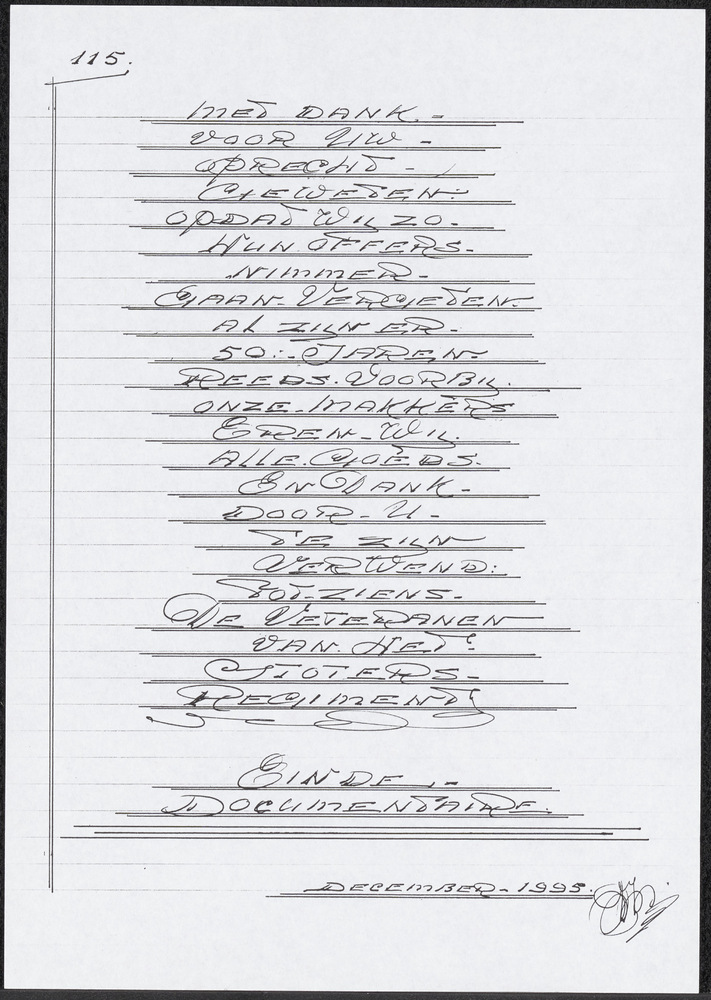 115.
MET DANK.-
VOOR UW -
OPRECHT -
GEWETEN:
OPDAT WIJ ZO.
HUN OFFERS.
NIMMER.
GAAN. VERGETEN.
AL ZIJN ER.
50:- JAREN.
REEDS. VOORBIJ.
ONZE. MAKKERS
EREN. WIJ.
ALLE. GOEDS.
EN DANK.
DOOR - U -
TE ZIJN
VERWEND:
TOT. ZIENS.
DE VETERANEN
VAN. HET.
STOTERS-
REGIMENT
EINDE.-
DOCUMENTAIRE.
DECEMBER - 1995.